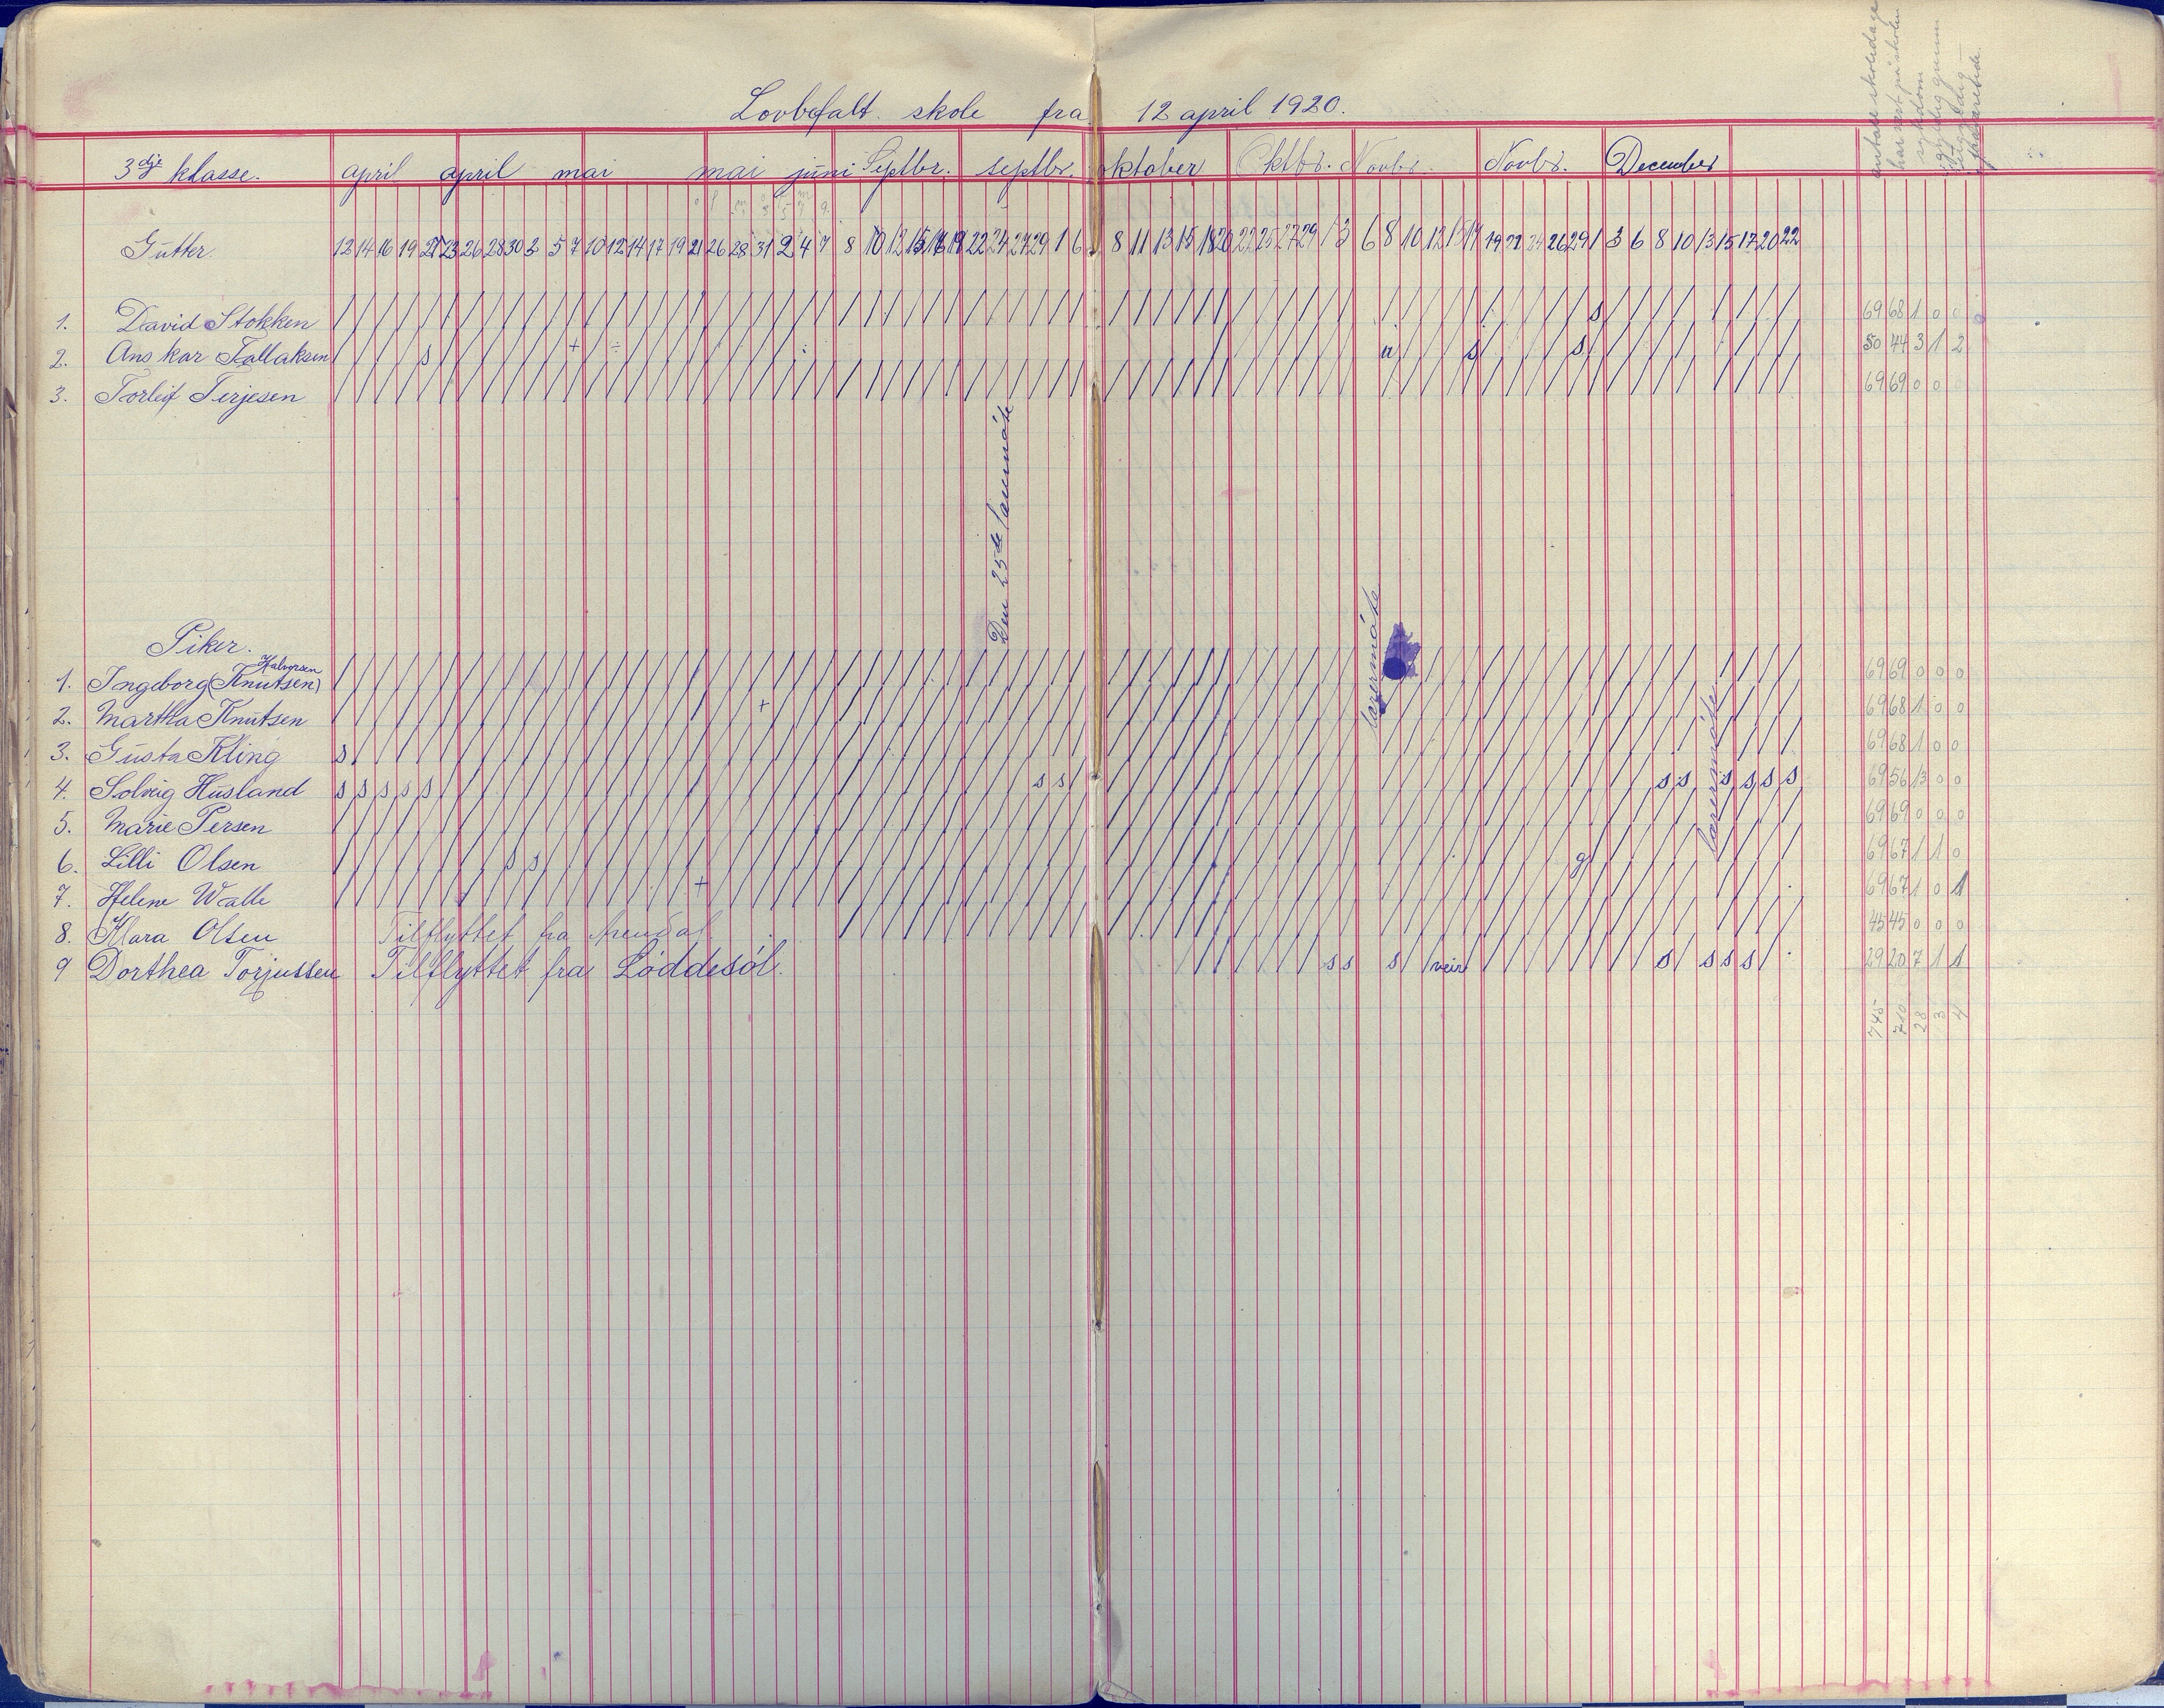 Lovbefalt skole fra 12 april 1920.
3dje klasse. april april mai mai juni Septbr. septbr. oktober Oktbr. Novbr. Novbr. December
Gutter 12 14 16 19 21 23 26 28 30 3 5 7 10 12 14 17 19 21 26 28 31 2 4 7 8 10 12 15 17 19 22 24 27 29 1 6 8 11 13 15 18 20 22 25 27 29 1 3 6 8 10 12 15 17 19 22 24 26 29 1 3 6 8 10 13 15 17 20 22
1. David Stokken s 69 68 1 0 0
2. Anskar Tallaksen s + ÷ u s s 50 44 3 1 2
3. Torleif Terjesen 69 69 0 0
Den 25de lærermøte
lærermøte
Piker.
Halvorsen
1. Ingeborg (Knutsen) 69 69 0 0 0
2. Martha Knutsen + 69 68 1 0 0
3. Gusta Kling s 69 68 1 0 0
4. Solveig Husland s s s s s s s s s s s s s 69 56 13 0 0
lærermøte
5. Marie Persen 69 69 0 0 0
6. Lilli Olsen s s g 69 67 1 1 0
7. Helene Walle + 69 67 1 0 1
8. Klara Olsen Tilflyttet fra Arendal 45 45 0 0 0
9 Dorthea Torjussen Tilflyttet fra Løddesøl. s s s veir s s s s 29 20 7 1 1
745 710 28 3 4